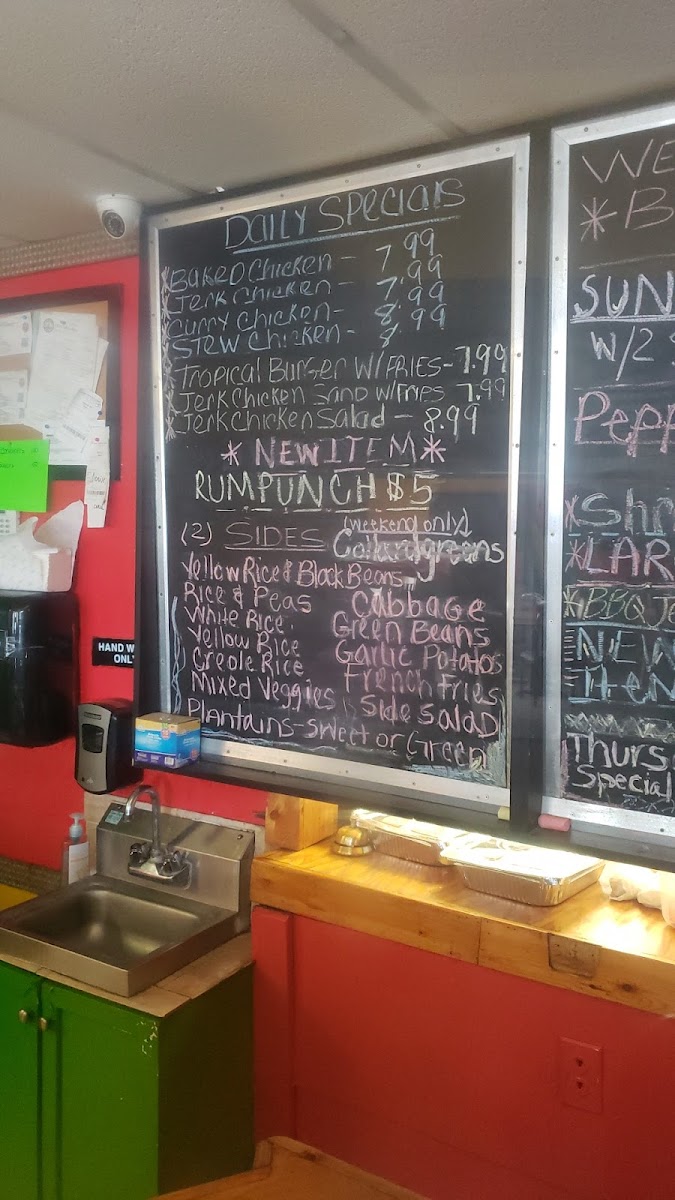 Daily Specials
*Baked Chicken - 7.99
*Jerk Chicken - 7.99
*Curry Chicken - 8.99
*Stew Chicken - 8.99
*Tropical Burger W/ Fries - 7.99
*Jerk Chicken Sand w/Fries 7.99
*Jerk Chicken Salad - 8.99
* NEW ITEM *
RUM PUNCH $5
(2) SIDES
(weekend only)
Collard greens
Yellow Rice & Black Beans
Rice & Peas
White Rice
Yellow Rice
Creole Rice
Mixed Veggies
Plantains - sweet or Green
Cabbage
Green Beans
Garlic Potatos
French Fries
Side Salad
WE
* B
SUN
W/2 S
Pepp
*Shr
*LAR
*BBQ Je
NEW
Item
Thurs
Special
HAND W
ONL